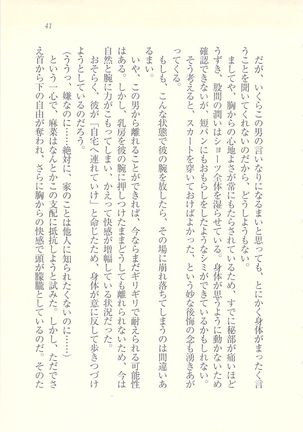 41
だが、いくらこの男の言いなりになるまいと思っても、とにかく身体がまったく言
うことを聞いてくれないのだから、どうしようもない。
ましてや、胸からの心地よさが常にもたらされているため、すでに秘部が痛いほど
うずき、股間の潤いはショーツ全体を湿らせている。身体が思うように動かないため
確認できないが、短パンにもおもらしをしたようなシミができているかもしれない。
そう考えると、スカートを穿いておけばよかった、という妙な後悔の念も湧きあが
ってくる。
もしも、こんな状態で彼の腕を放したら、その場に崩れ落ちてしまうのは間違いあ
るまい。
いや、この男から離れることができれば、今ならまだギリギリで耐えられる可能性
はある。しかし、乳房を彼の腕に押しつけたままどうしても離れられないため、今は
自然と腕に力がこもってしまい、かえって快感が増幅している状況だった。
おそらく、彼が「自宅へ連れていけ」と命じたため、身体が意に反して歩きつづけ
ようとしているのだろう。
(ううっ、嫌なのに……絶対に、家のことは他人に知られたくないのに……)
という一心で、麻菜はなんとかこの支配に抵抗しようと試みた。しかし、ただでさ
え首から下の自由が奪われ、さらに胸からの快感で頭が朦朧としているのだ。そのた